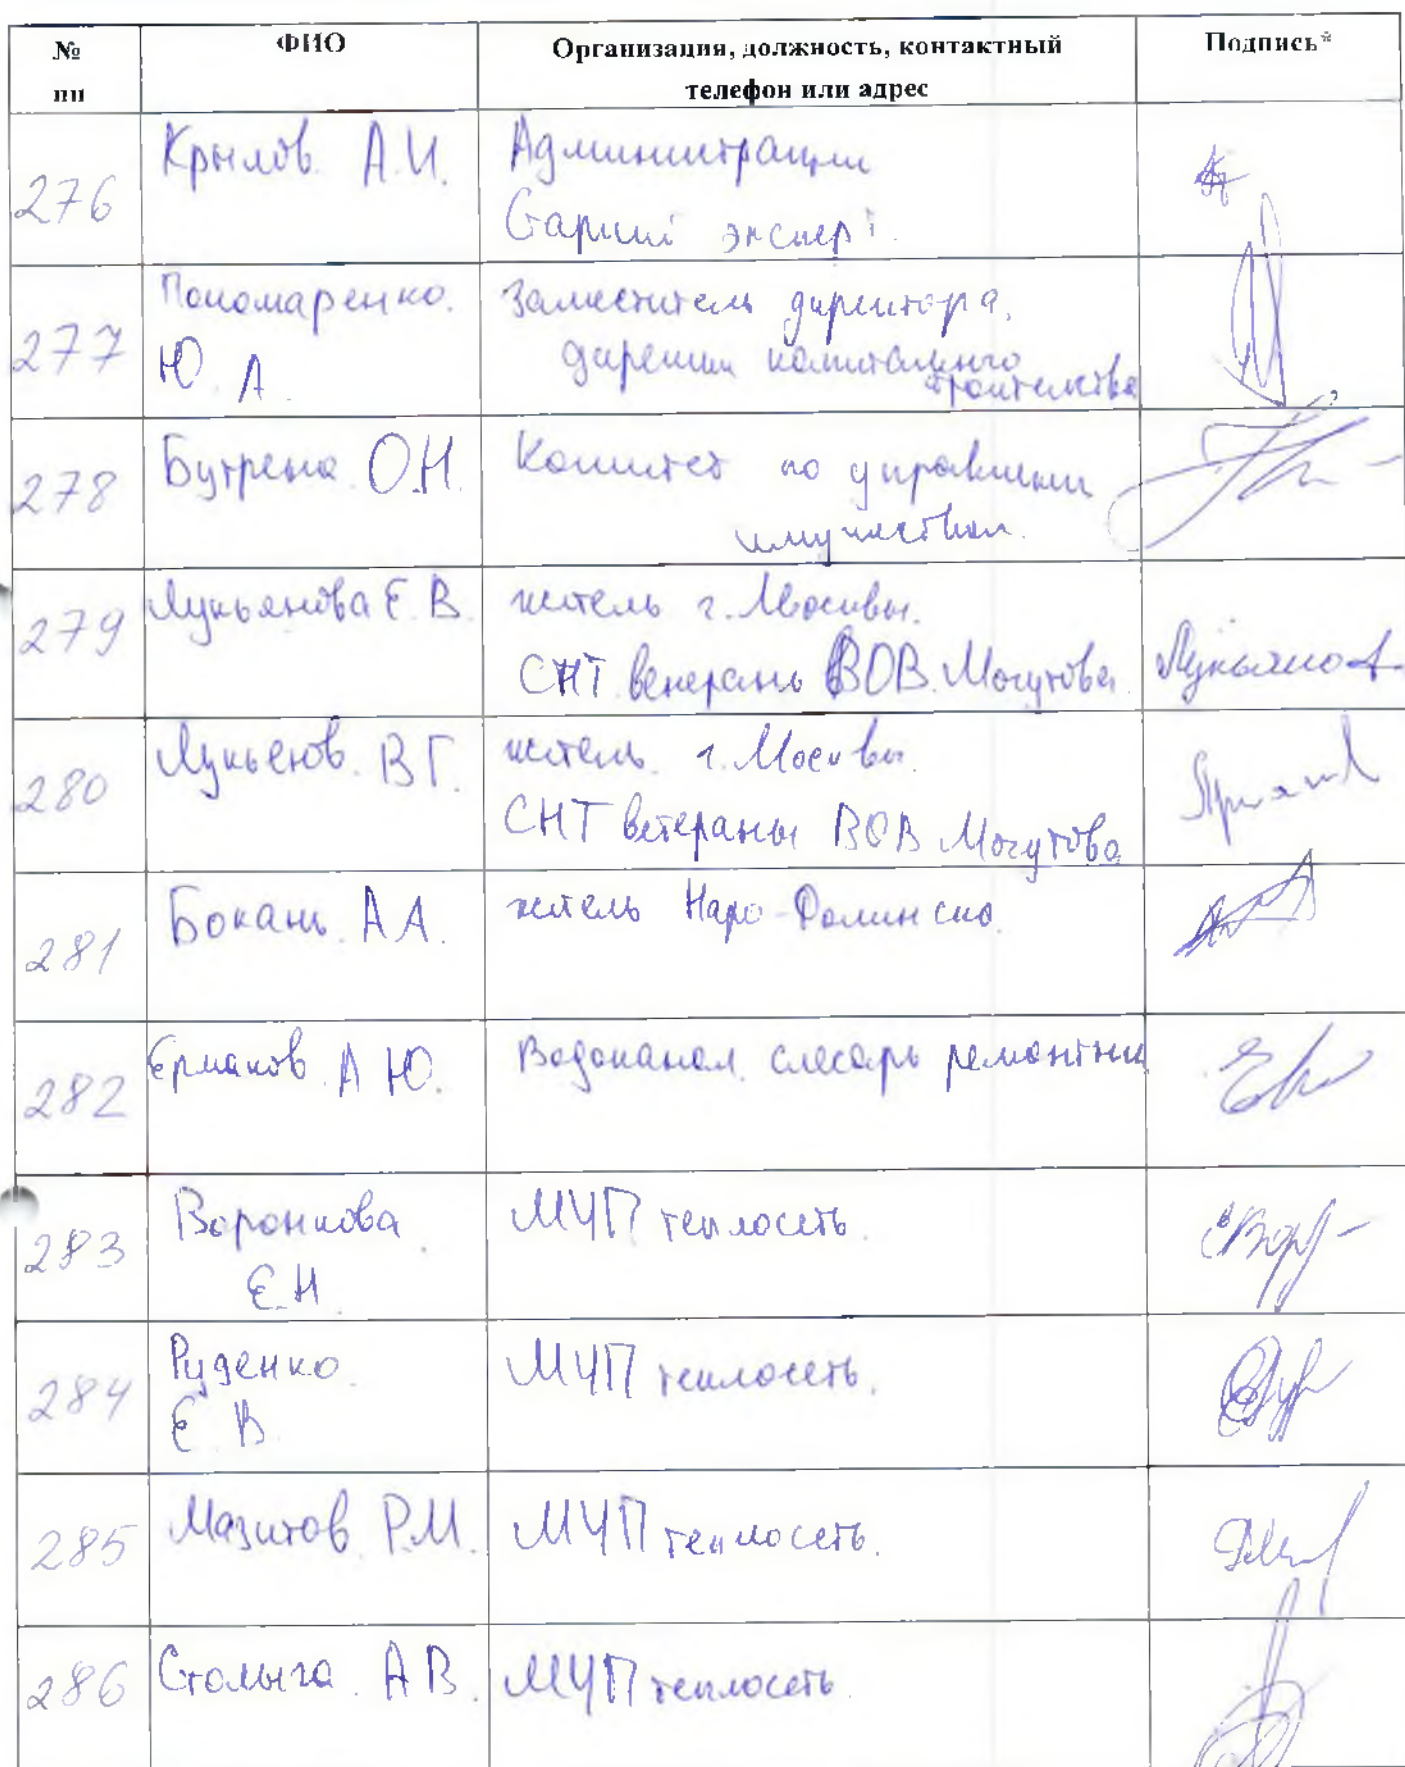 № ФИО Организация, должность, контактный Подпись*
пп телефон или адрес
276 Крылов. А.И. Администрации
Старший эксперт.
277 Пономаренко. Заместитель директора,
Ю. А. дирекции капитального
строительства
278 Бутрена О.Н. Комитет по управлению
имуществом.
279 Лукьянова Е.В. житель г. Москвы.
СНТ ветераны ВОВ. Могутова Лукьянова
280 Лукьенов. В Г. житель. г. Москвы.
СНТ ветераны ВОВ Могутово
281 Бокань. А А. житель Наро-Фоминска.
282 Ермаков. А Ю. Водоканал. слесарь ремонтник
283 Воронкова МУП теплосеть.
Е.Н.
284 Руденко. МУП теплосеть.
Е В.
285 Мазитов. Р.М. МУП теплосеть.
286 Столыга. А В. МУП теплосеть.